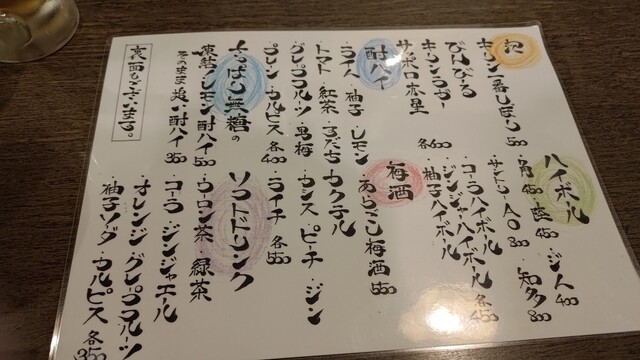 泡
キリン一番しぼり 550
びんびる
キリンラガー
サッポロ赤星 各600
酎ハイ
ライム・柚子・レモン
トマト・紅茶・すだち
グレプフルーツ・男梅
プレーン・カルピス 各400
さっぱり無糖の
凍結レモン酎ハイ 500
そのまま追い酎ハイ 350
裏面もございます。
ハイボール
・角 450・陸 450・ジム 400
・サントリーAO 800・知多 800
・コーラハイボール
・ジンジャーハイボール
・柚子ハイボール 各450
梅酒
あらごし梅酒 550
カクテル
・カシス・ピーチ・ジン
・ライチ 各550
ソフトドリンク
・ウーロン茶・緑茶
・コーラ・ジンジャエール
・オレンジ・グレプフルーツ
・柚子ソーダ・カルピス 各350